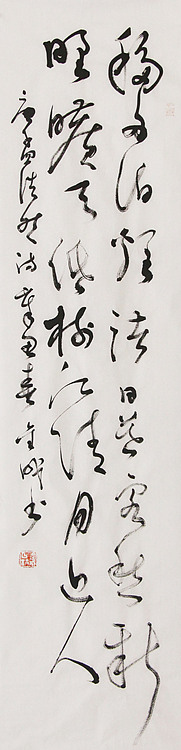 移舟泊烟渚日暮客愁新
野旷天低树江清月近人
唐孟浩然诗辛丑春金城书